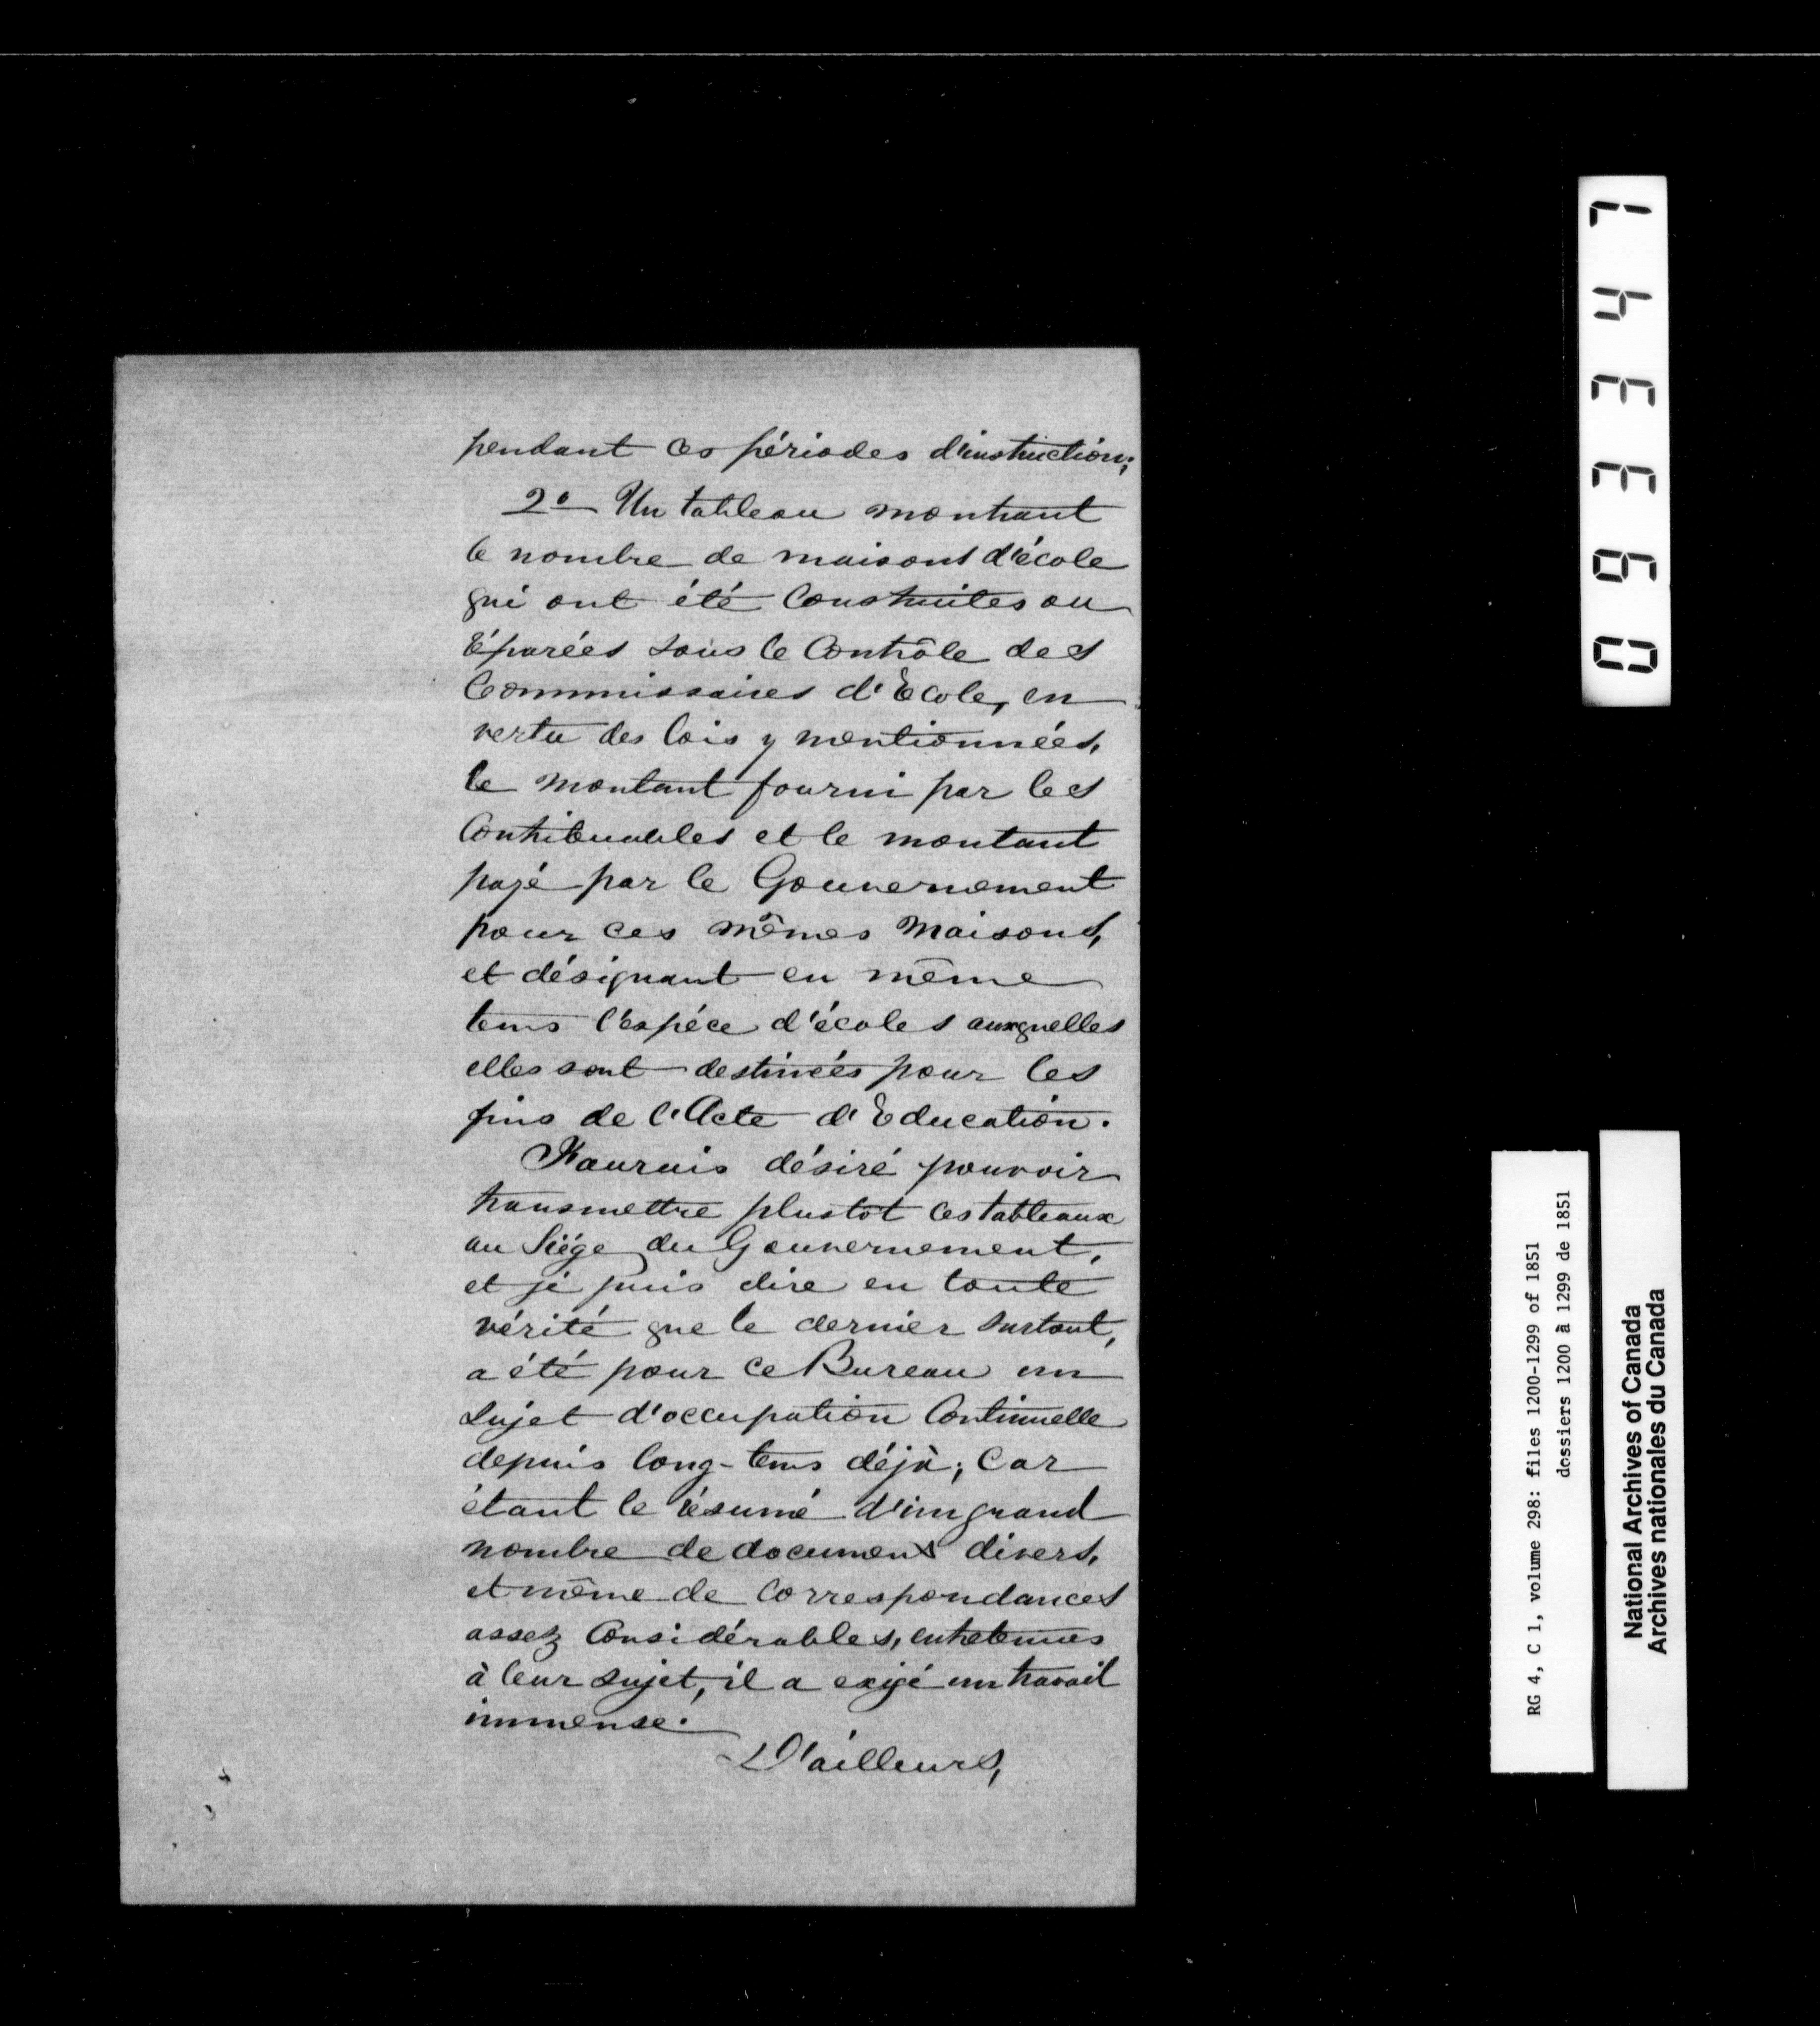 pendant ces périodes d'instruction;
2º Un tableau montrant
le nombre de maisons d'école
qui ont été Construites ou
réparées sous le Contrôle des
Commissaires d'Ecole, en
vertu des lois y mentionnées,
le montant fourni par les
Contribuables et le montant
payé par le Gouvernement
pour ces mêmes Maisons,
et désignant en même
tems l'espéce d'écoles auxquelles
elles sont destinées pour les
fins de l'Acte d'Education.
J'aurais désiré pouvoir
transmettre plustôt ces tableaux
au Siége du Gouvernement,
et je puis dire en toute
vérité que le dernier surtout,
a été pour ce Bureau un
sujet d'occupation Continuelle
depuis long-tems déjà; Car
étant le résumé d'un grand
nombre de documens divers,
et même de Correspondances
assez Considérables, entretenues
à leur sujet, il a exigé un travail
immense.
D'ailleurs,
093347
RG 4, C 1, volume 298: files 1200-1299 of 1851
dossiers 1200 à 1299 de 1851
National Archives of Canada
Archives nationales du Canada